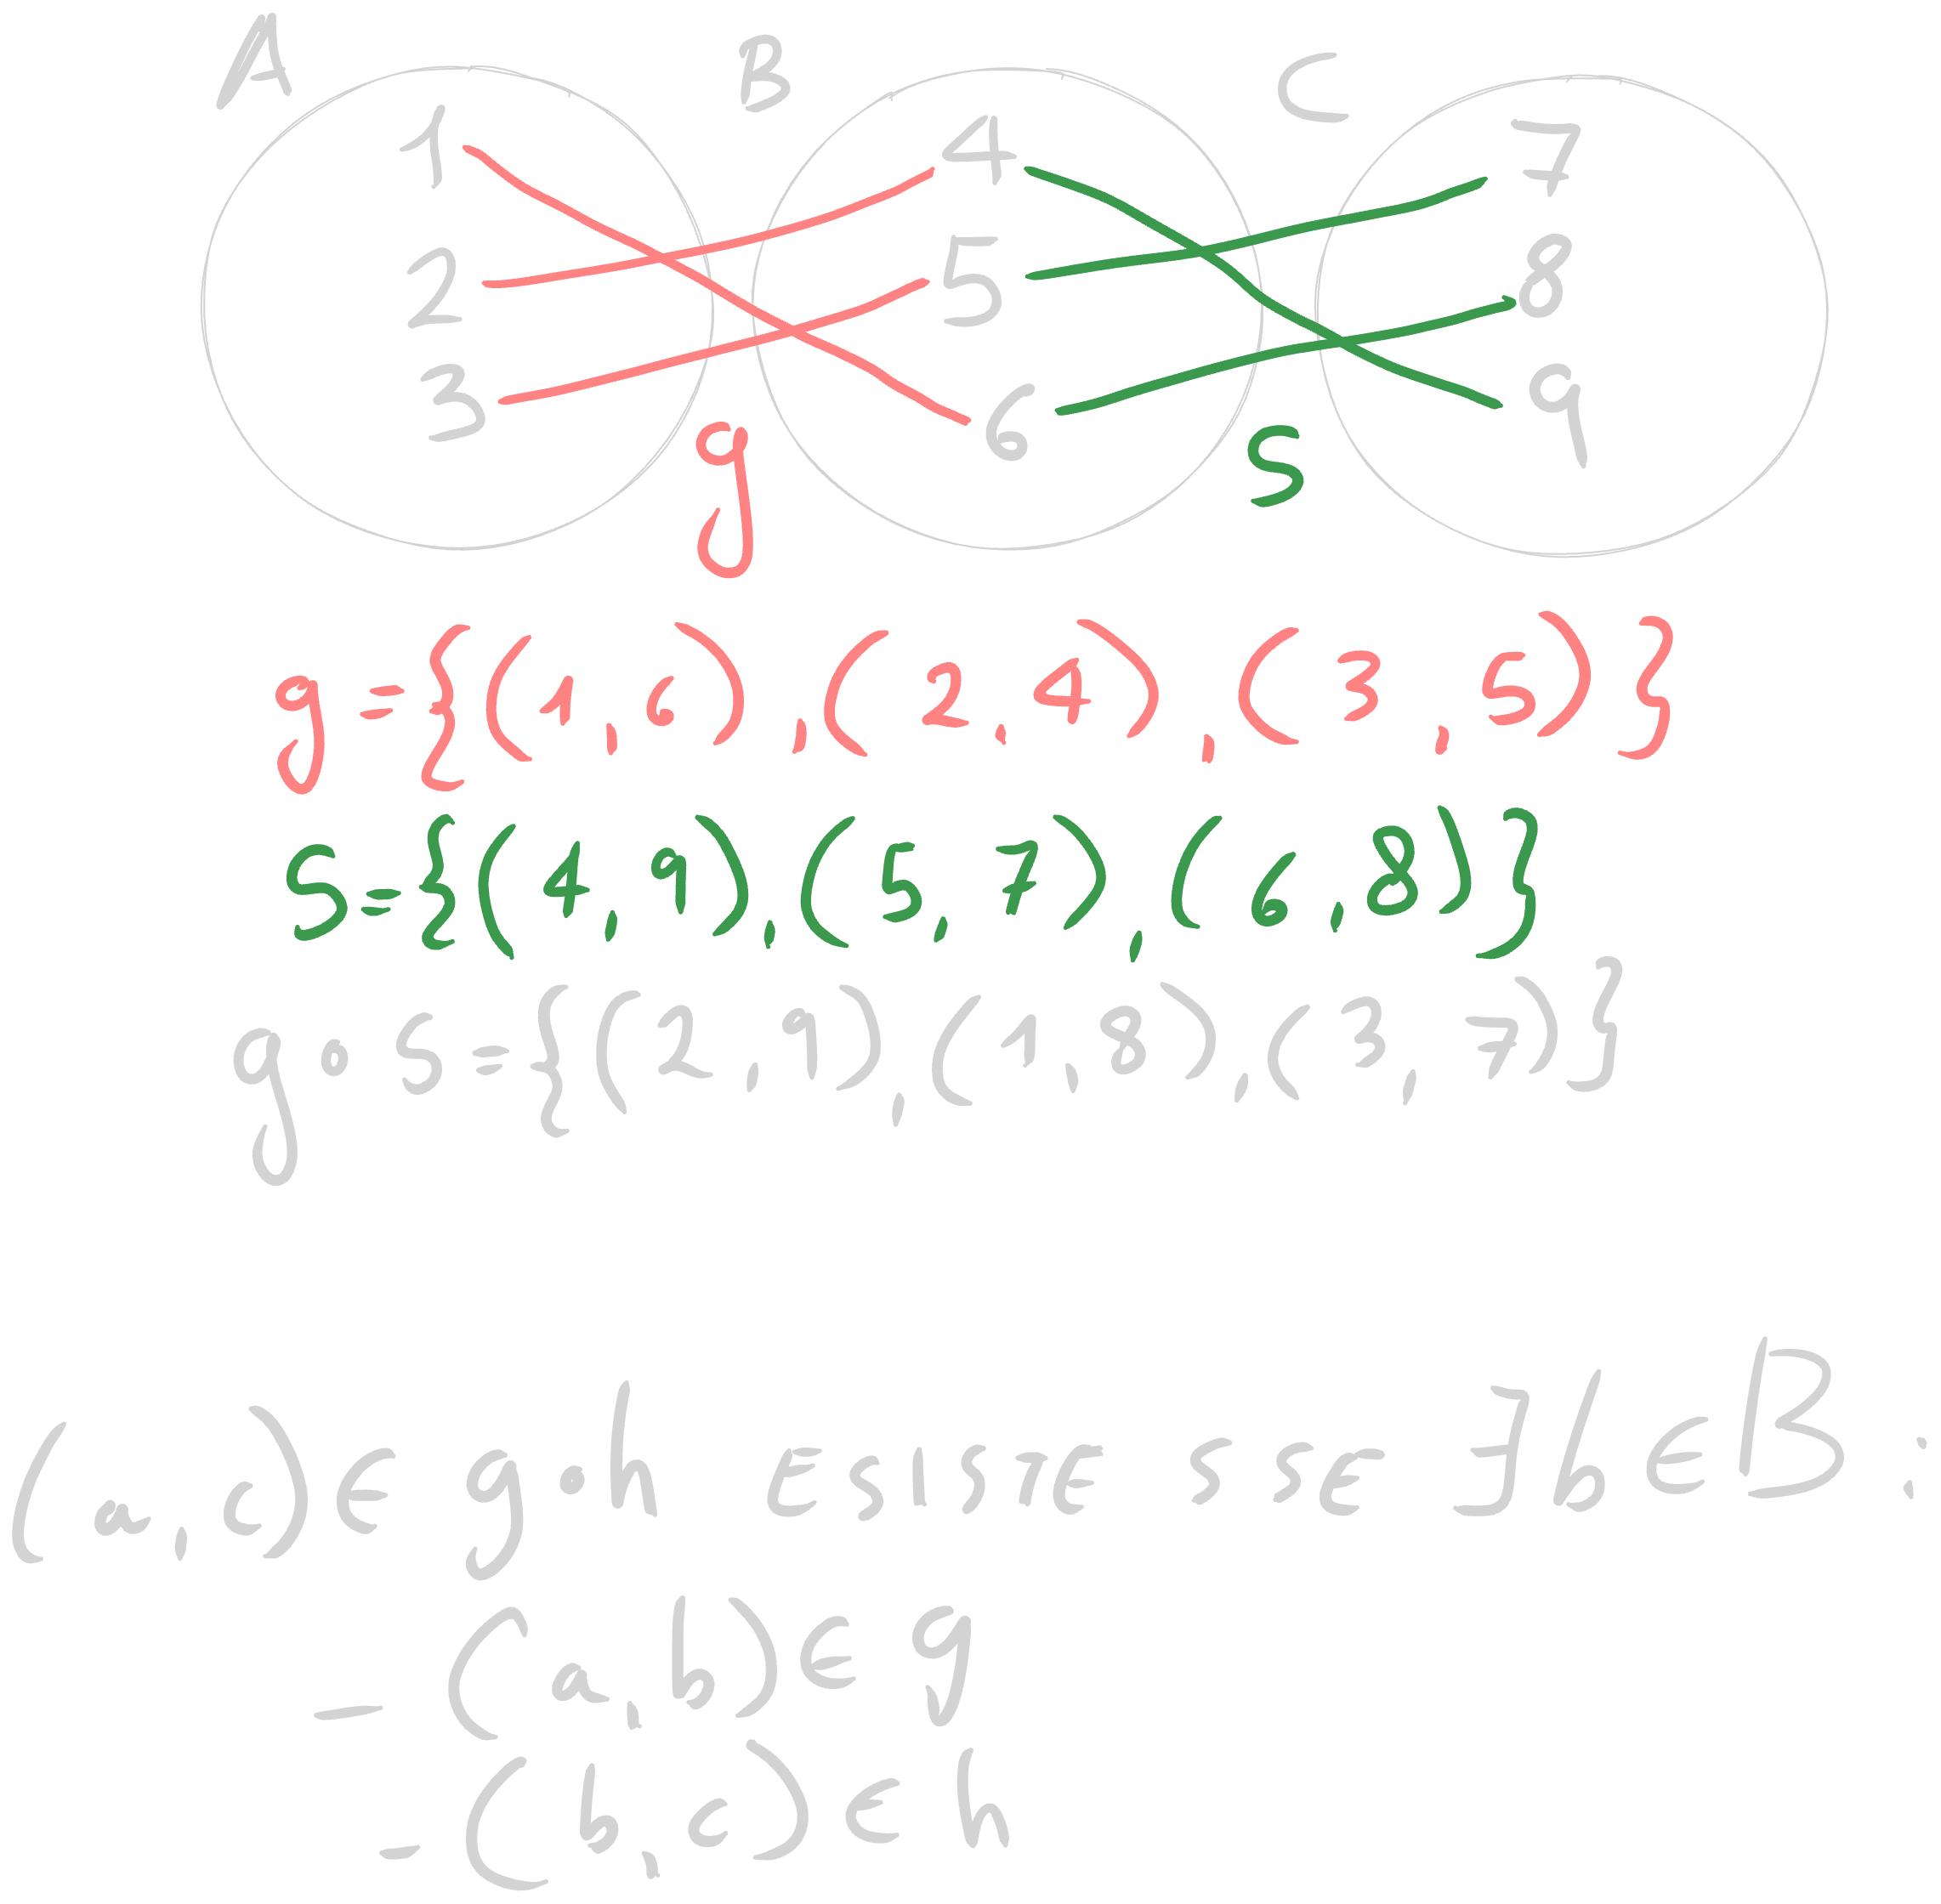 A B C
1 4 7
2 5 8
3 6 9
g s
g={(1,6),(2,4),(3,5)}
s={(4,9),(5,7),(6,8)}
g∘s={(2,9),(1,8),(3,7)}
(a,c)∈ g∘h ESISTE SSE ∃b∈B:
- (a,b)∈ g
- (b,c)∈ h